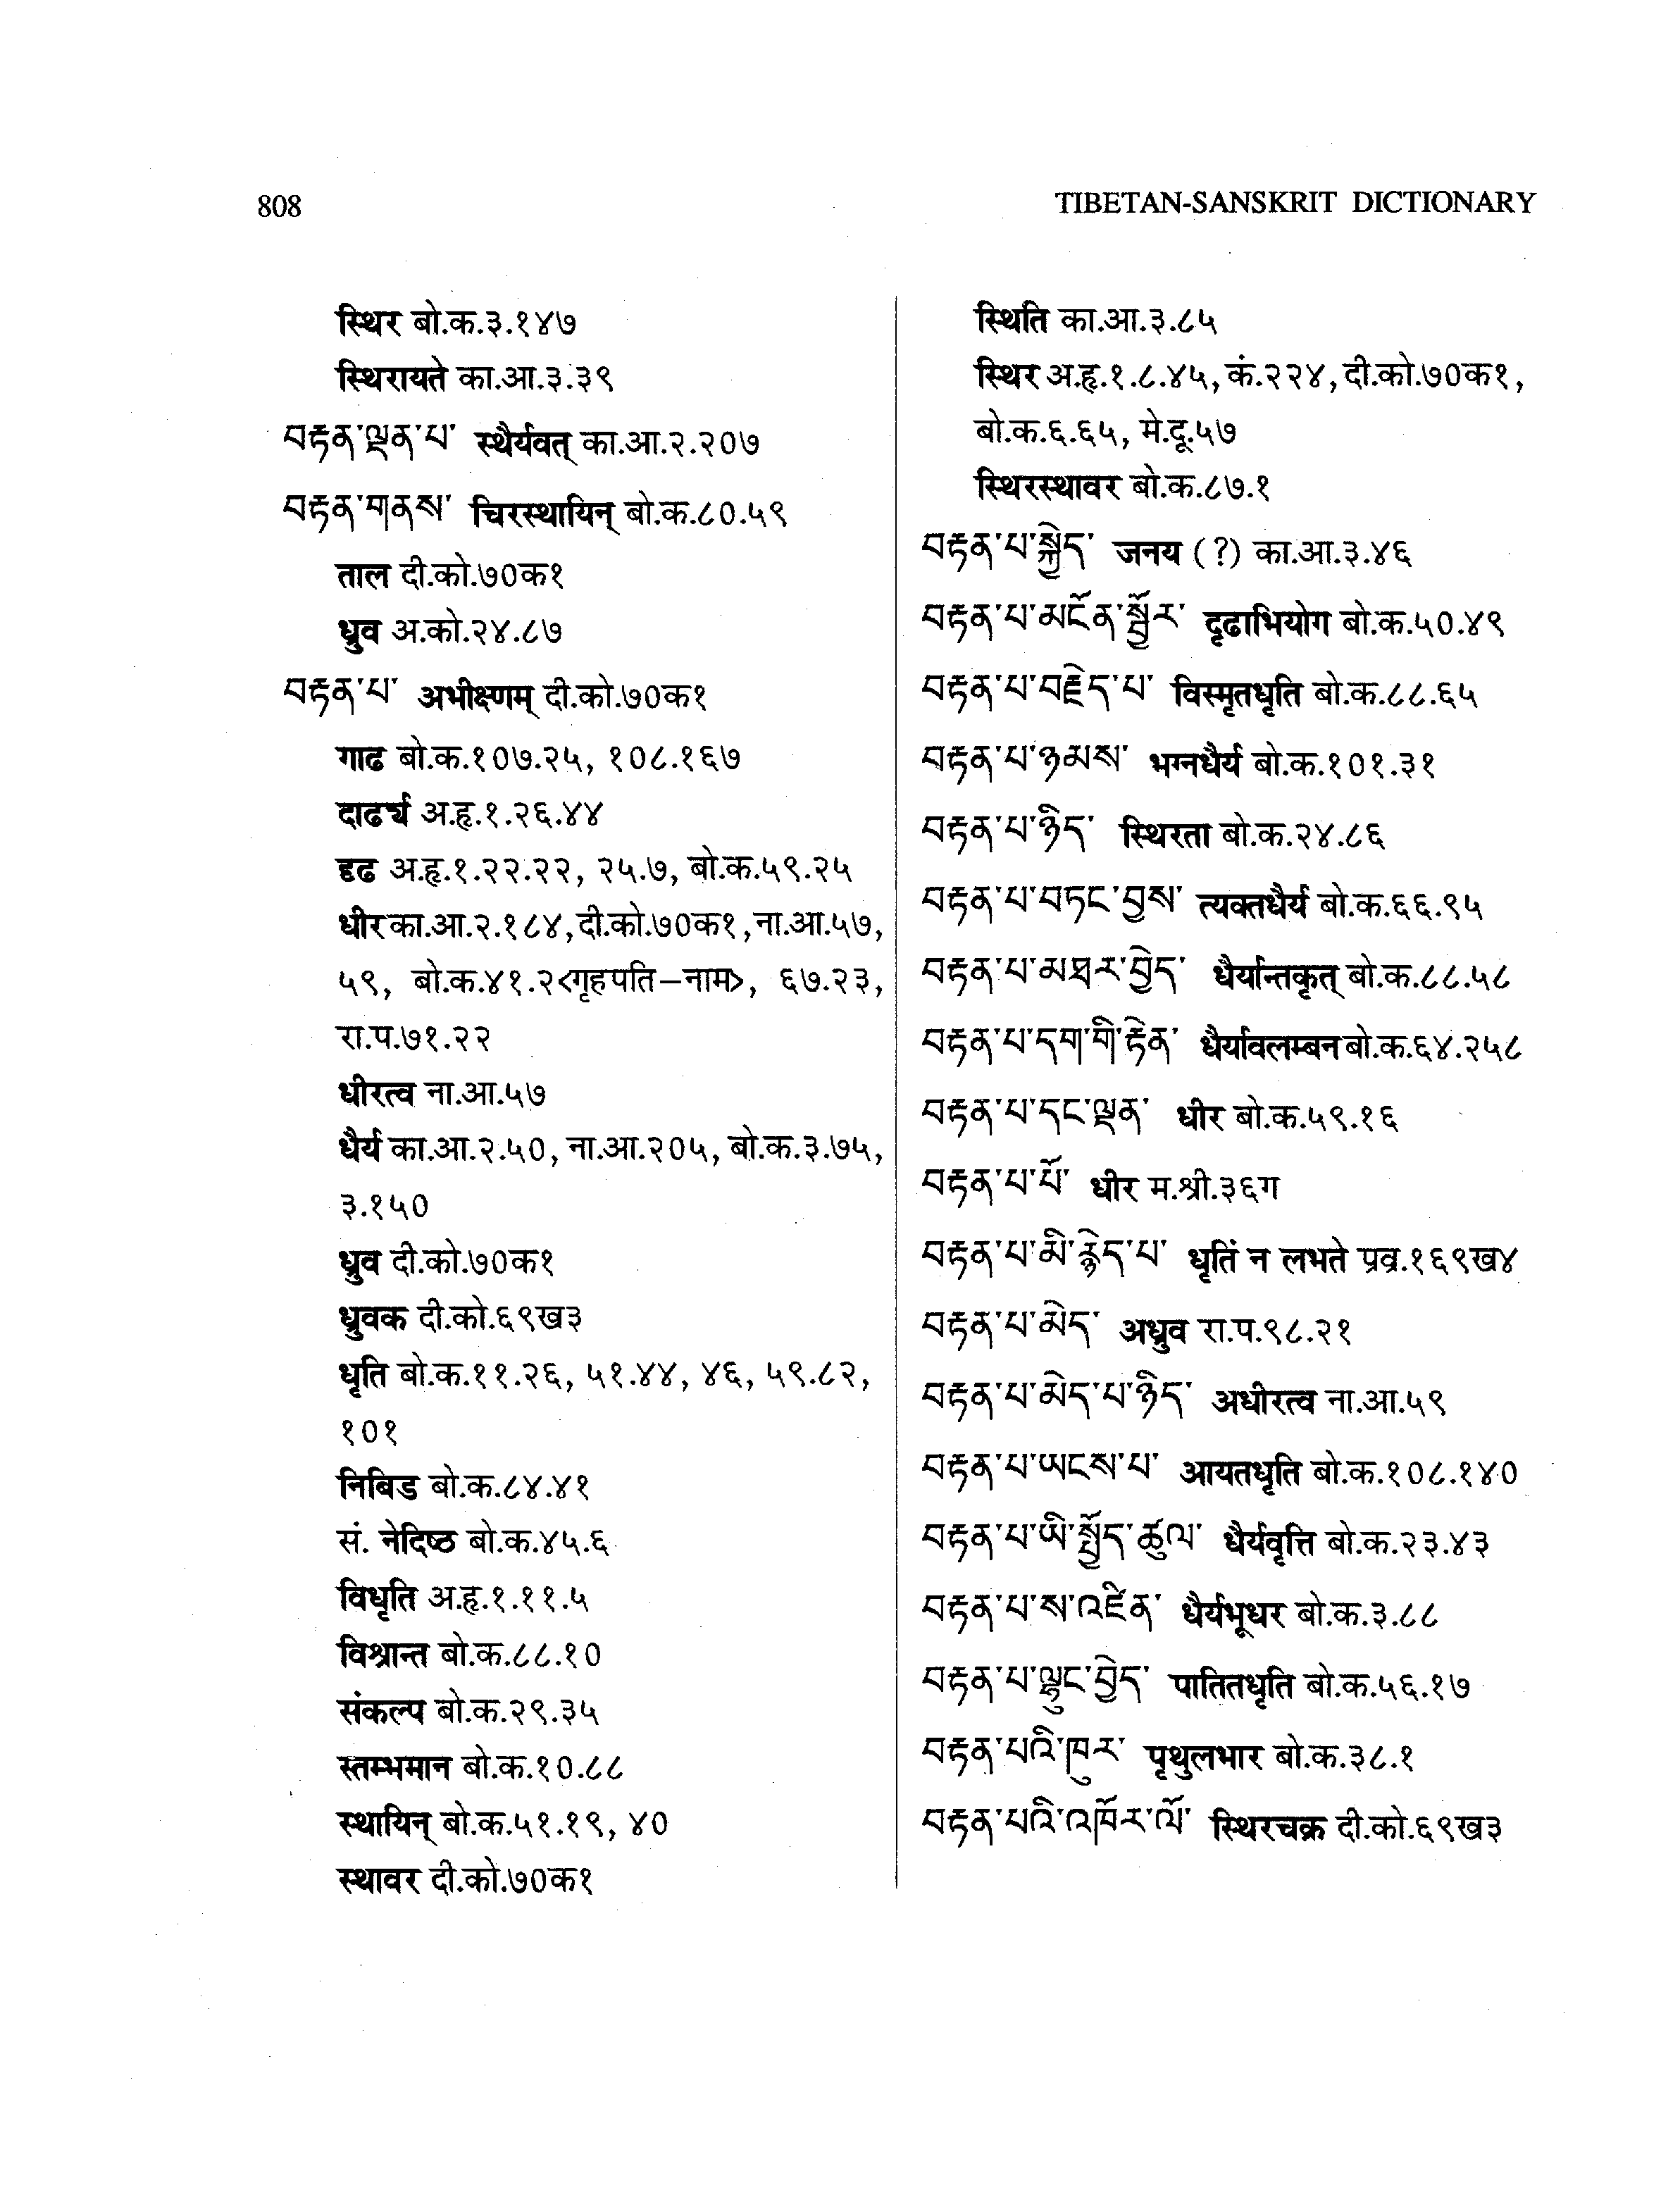 808
TIBETAN-SANSKRIT DICTIONARY
स्थिर बो.क.३.१४७
स्थिरायते का.आ.३.३९
བརྟན་ལྡན་པ་ स्थैर्यवत् का.आ.२.२०७
བརྟན་གནས་ चिरस्थायिन् बो.क.८०.५९
ताल दी.को.७०क१
ध्रुव अ.को.२४.८७
བརྟན་པ་ अभीक्ष्णम् दी.को.७०क१
गाढ बो.क.१०७.२५, १०८.१६७
दार्ढ्य अ.हृ.१.२६.४४
दृढ अ.हृ.१.२२.२२, २५.७, बो.क.५९.२५
धीर का.आ.२.१८४, दी.को.७०क१, ना.आ.५७,
५९, बो.क.४१.२<गृहपति–नाम>, ६७.२३,
रा.प.७१.२२
धीरत्व ना.आ.५७
धैर्य का.आ.२.५०, ना.आ.२०५, बो.क.३.७५,
३.१५०
ध्रुव दी.को.७०क१
ध्रुवक दी.को.६९ख३
धृति बो.क.११.२६, ५१.४४, ४६, ५९.८२,
१०१
निबिड बो.क.८४.४१
सं. नेदिष्ठ बो.क.४५.६
विधृति अ.हृ.१.११.५
विश्रान्त बो.क.८८.१०
संकल्प बो.क.२९.३५
स्तम्भमान बो.क.१०.८८
स्थायिन् बो.क.५१.१९, ४०
स्थावर दी.को.७०क१
स्थिति का.आ.३.८५
स्थिर अ.हृ.१.८.४५, कं.२२४, दी.को.७०क१,
बो.क.६.६५, मे.दू.५७
स्थिरस्थावर बो.क.८७.१
བརྟན་པ་སྐྱེད་ जनय (?) का.आ.३.४६
བརྟན་པ་མངོན་སྦྱོར་ दृढाभियोग बो.क.५०.४९
བརྟན་པ་བརྗེད་པ་ विस्मृतधृति बो.क.८८.६५
བརྟན་པ་ཉམས་ भग्नधैर्य बो.क.१०१.३१
བརྟན་པ་ཉིད་ स्थिरता बो.क.२४.८६
བརྟན་པ་བཏང་བྱས་ त्यक्तधैर्य बो.क.६६.९५
བརྟན་པ་མཐར་བྱེད་ धैर्यान्तकृत् बो.क.८८.५८
བརྟན་པ་དག་གི་རྟེན་ धैर्यावलम्बन बो.क.६४.२५८
བརྟན་པ་དང་ལྡན་ धीर बो.क.५९.१६
བརྟན་པ་པོ་ धीर म.श्री.३६ग
བརྟན་པ་མི་རྙེད་པ་ धृतिं न लभते प्रव्र.१६९ख४
བརྟན་པ་མེད་ अध्रुव रा.प.९८.२१
བརྟན་པ་མེད་པ་ཉིད་ अधीरत्व ना.आ.५९
བརྟན་པ་ཡངས་པ་ आयतधृति बो.क.१०८.१४०
བརྟན་པ་ཡི་སྤྱོད་ཚུལ་ धैर्यवृत्ति बो.क.२३.४३
བརྟན་པ་ས་འཛིན་ धैर्यभूधर बो.क.३.८८
བརྟན་པ་ལྷུང་བྱེད་ पातितधृति बो.क.५६.१७
བརྟན་པའི་ཁུར་ पृथुलभार बो.क.३८.१
བརྟན་པའི་འཁོར་ལོ་ स्थिरचक्र दी.को.६९ख३